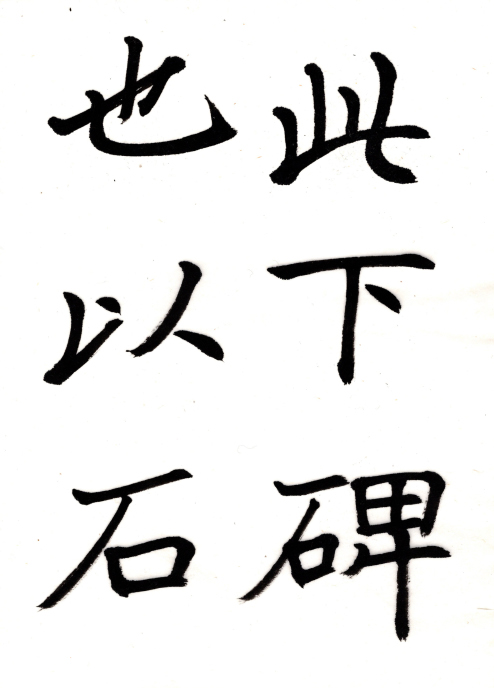 此下碑
也以石